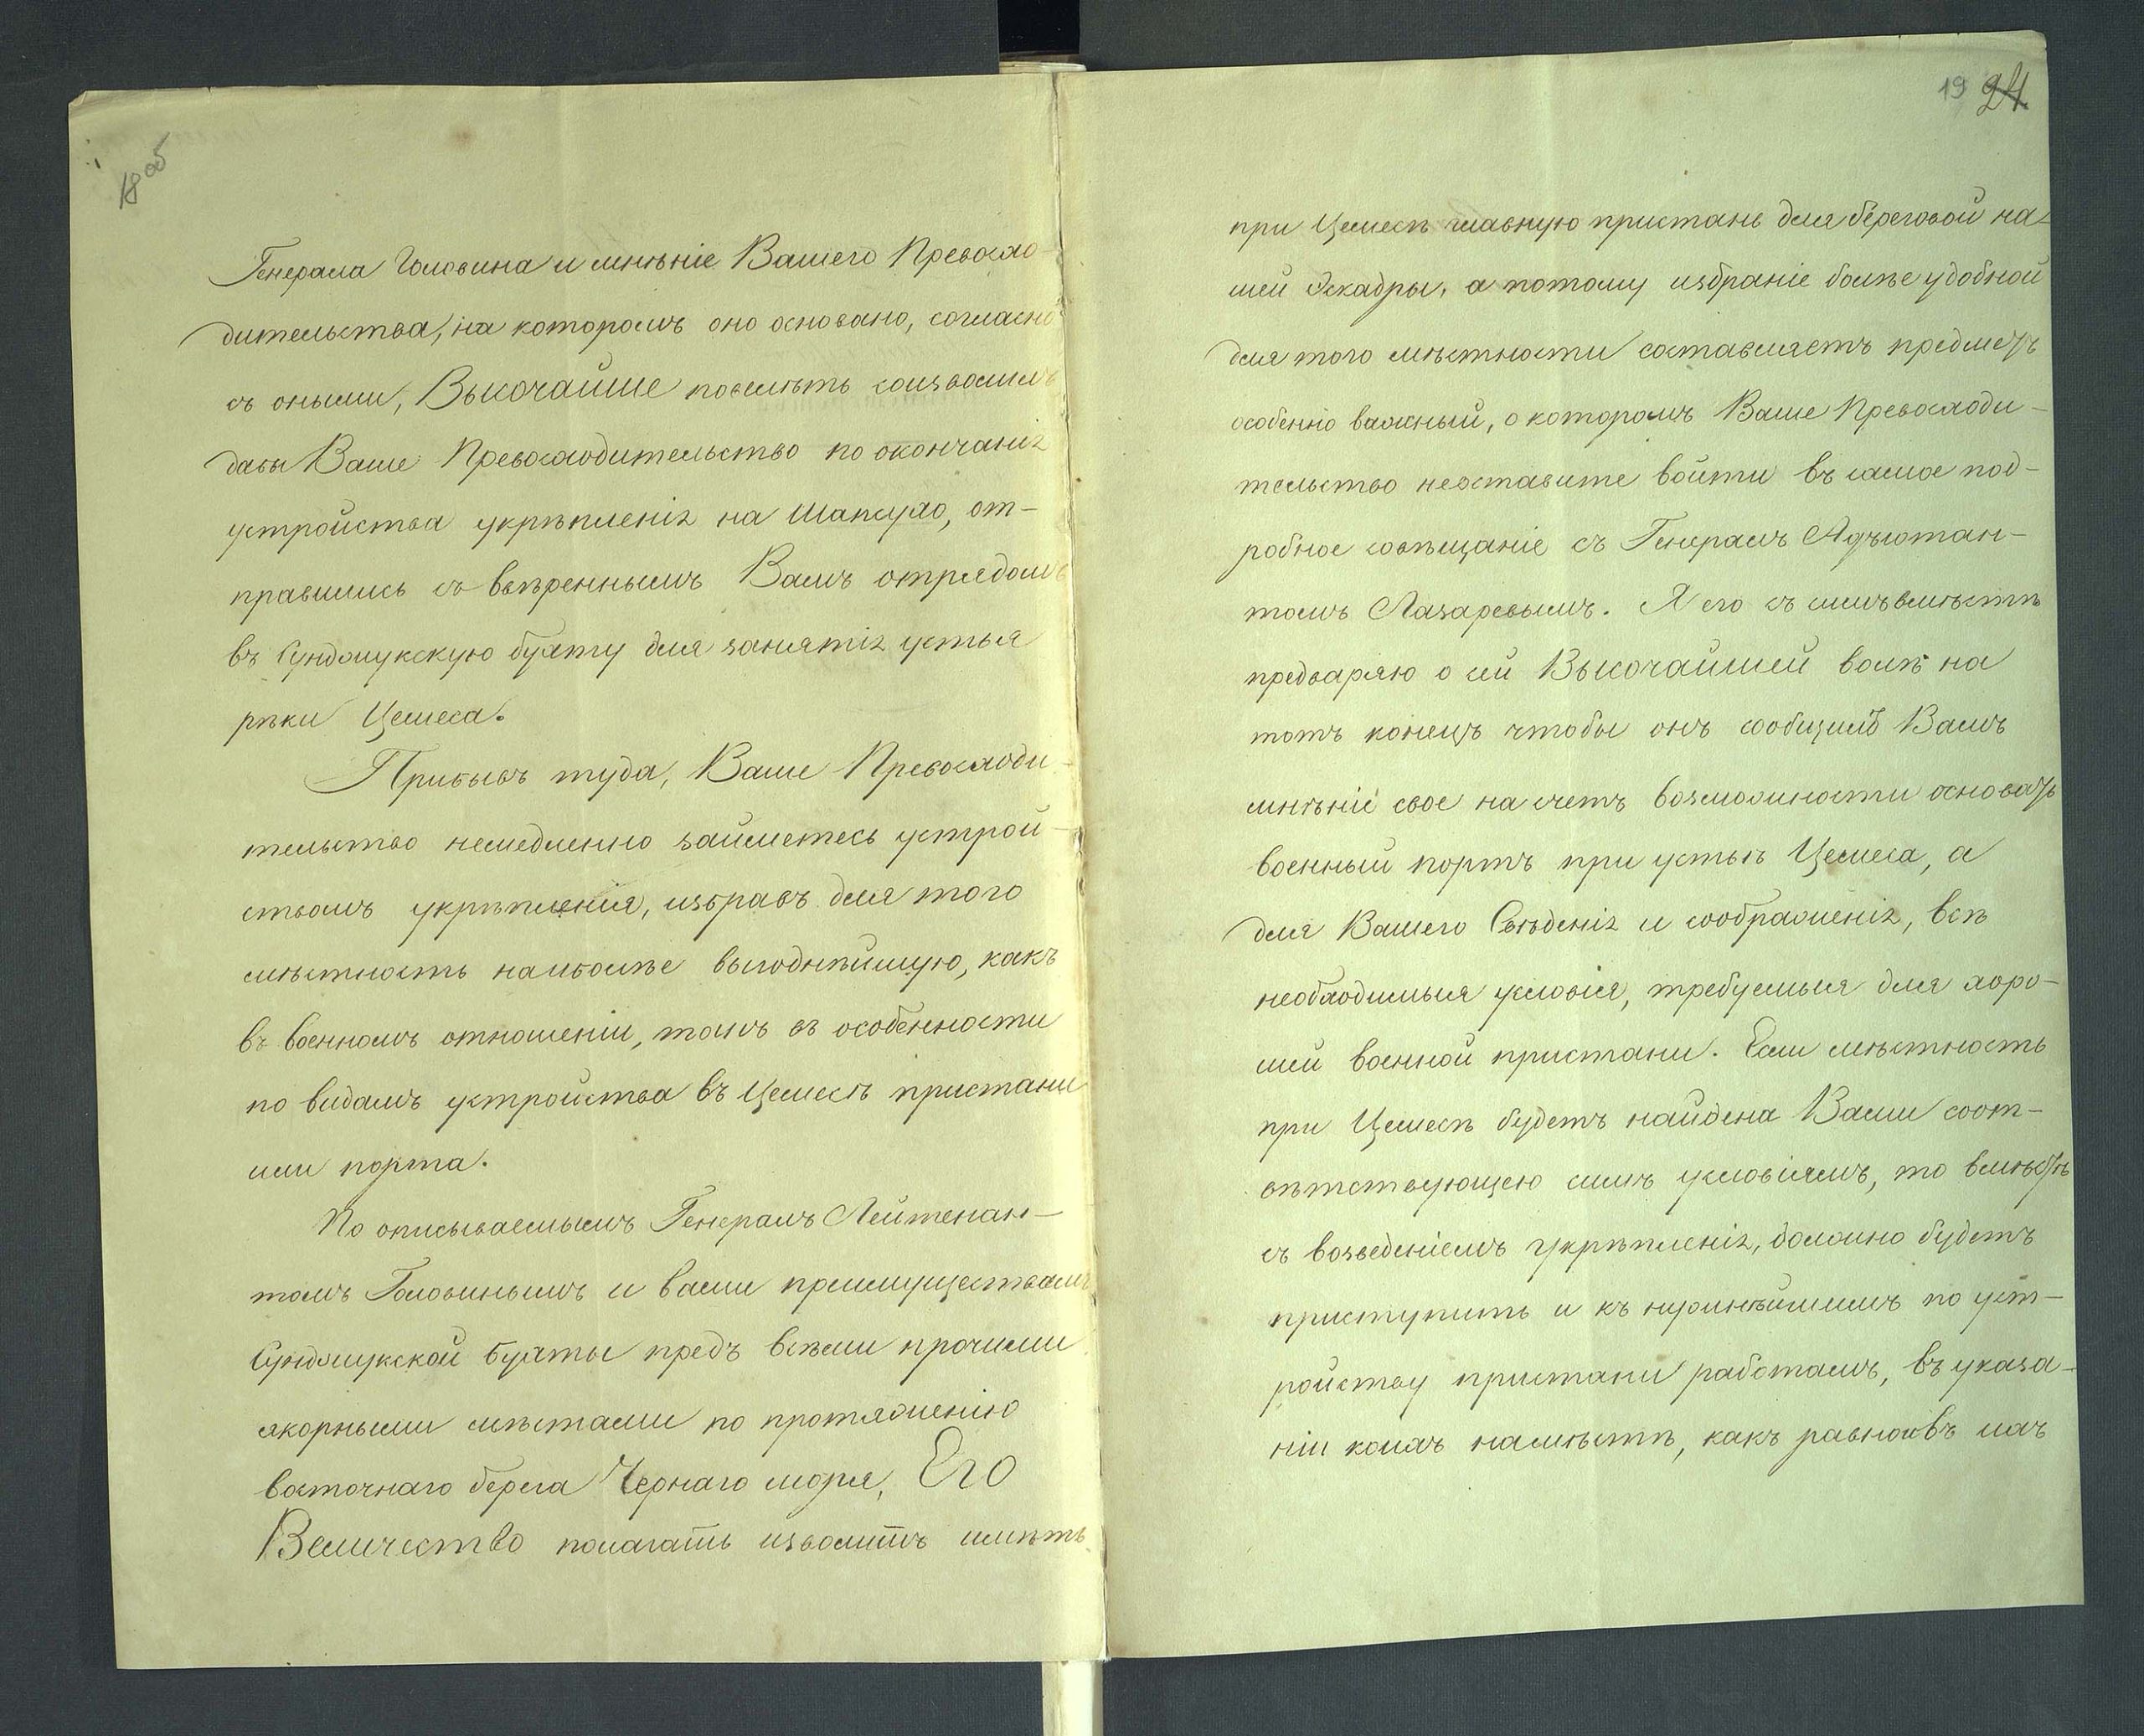 18 об
Генерала Головина и мнѣніе Вашего Превосхо-
дительства, на которомъ оно основано, согласно
съ оными, Высочайше повелѣть соизволилъ
дабы Ваше Превосходительство по окончаніи
устройства укрѣпленія на Шапсухо, от-
правились съ ввѣреннымъ Вамъ отрядомъ
въ Суджукскую бухту для занятія устья
рѣки Цемеса.
Прибывъ туда, Ваше Превосходи-
тельство немедленно займетесь устрой-
ствомъ укрѣпленія, избравъ для того
мѣстность наиболѣе выгоднѣйшую, какъ
въ военномъ отношеніи, такъ въ особенности
по видамъ устройства въ Цемесѣ пристани
или порта.
По описываемымъ Генералъ Лейтенан-
томъ Головинымъ и вами преимуществамъ
Суджукской бухты предъ всѣми прочими
якорными мѣстами по протяженію
восточнаго берега Чернаго моря, Его
Величество полагать изволитъ имѣть
19 24
при Цемесѣ главную пристань для береговой на-
шей Эскадры, а потому избраніе болѣе удобной
для того мѣстности составляетъ предметъ
особенно важный, о которомъ Ваше Превосходи-
тельство неоставите войти въ самое под-
робное совѣщаніе съ Генералъ Адъютан-
томъ Лазаревымъ. Я его съ симъ вмѣстѣ
предваряю о сей Высочайшей волѣ на
тотъ конецъ чтобы онъ сообщилъ Вамъ
мнѣніе свое на счетъ возможности основать
военный портъ при устьѣ Цемеса, а
для Вашего Свѣденія и соображенія, всѣ
необходимыя условія, требуемыя для хоро-
шей военной пристани. Если мѣстность
при Цемесѣ будетъ найдена Вами соот-
вѣтствующею симъ условіямъ, то вмѣстѣ
съ возведеніемъ укрѣпленія, должно будетъ
приступить и къ нужнѣйшимъ по уст-
ройству пристани работамъ, въ указа-
ніи коихъ на мѣстѣ, какъ равно въ